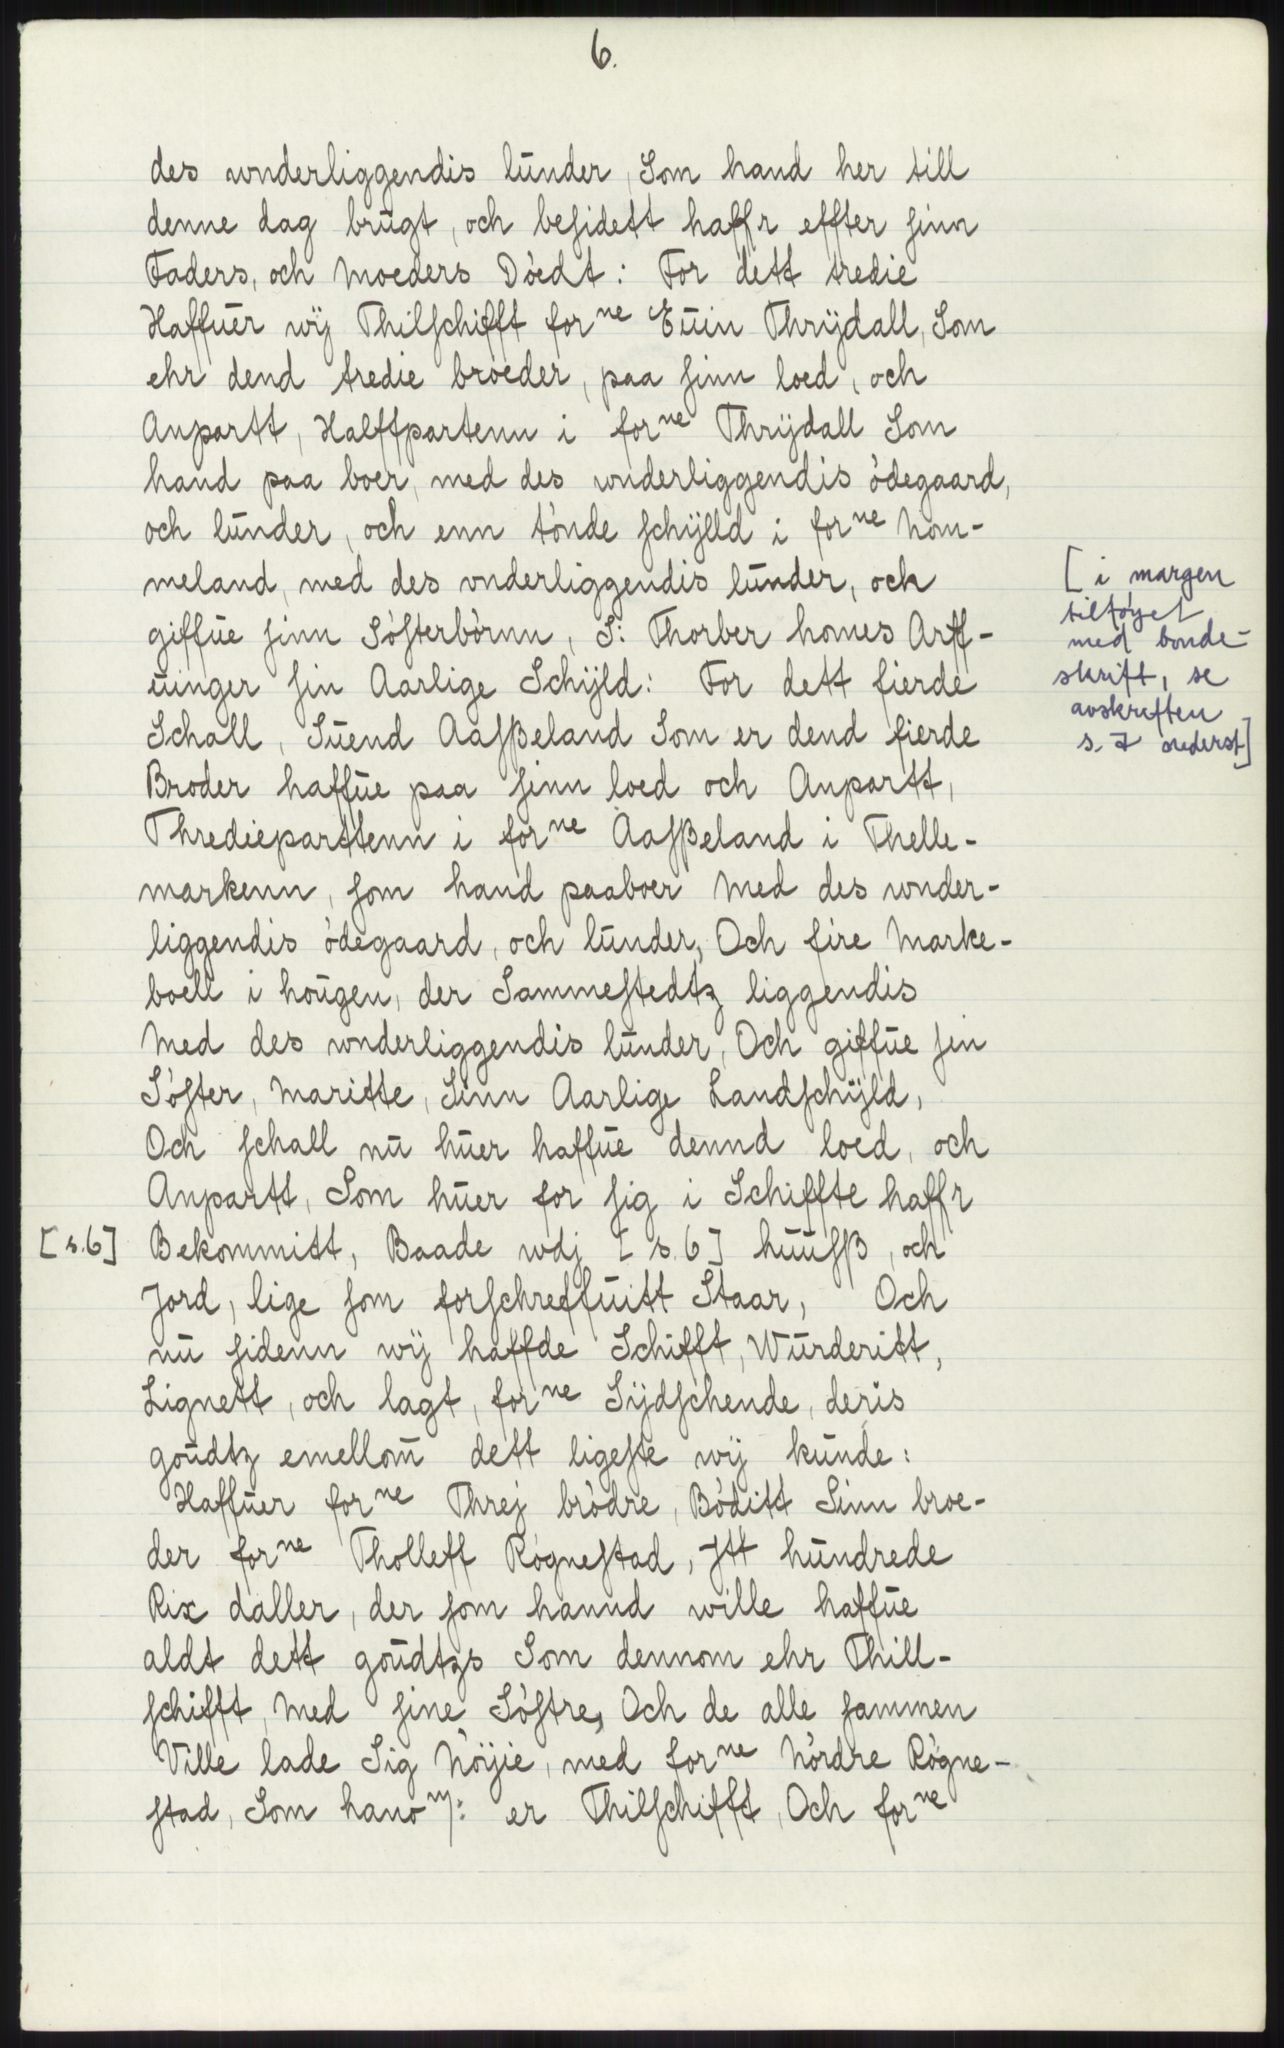 6.
des wnderliggendis lunder, Som hand her till
denne dag brugt, och besidett haffr effter sinn
Faders, och Moeders Dòedt: For dett tredie
Haffuer wÿ Thilschifft forne Euin Thrÿdall, Som
ehr dend tredie broeder, paa sinn loed, och
Anpartt, Halffpartenn i forne Thrÿdall Som
hand paa boer, med des wnderliggendis òdegaard,
och lunder, och enn tònde schÿlld i forne Nom-
meland, med des vnderliggendis lunder, och
giffue sinn Sòsterbòrnn, S: Thorber homes Arff-
uinger sin Aarlige Schÿld: For dett fierde
Schall, Suend Aasßeland Som er dend fierde
Broder haffue paa sinn loed och Anpartt,
Thredieparttenn i forne Aasßeland i Thelle-
markenn, som hand paaboer Med des wnder-
liggendis òdegaard, och lunder, Och fire Marke-
boell i hougen, der Sammestedtz liggendis
Med des wnderliggendis lunder, Och giffue sin
Sòster, Maritte, Sinn Aarlige Landschÿld,
Och schall nu huer haffue dennd loed, och
Anpartt, Som huer for sig i Schiffte haffr
[s.6] Bekommitt, Baade wdj [s.6] huusß, och
Jord, lige som forschreffuitt Staar, Och
nu sidenn wÿ haffde Schifft, Wurderitt,
Lignett, och lagt, forne Sÿdschende, deris
goudtz emellom dett ligeste wÿ kunde:
Haffuer forne Threj bròdre, Bòditt Sinn broe-
der forne Tholleff Rògnestad, Itt hundrede
Rix daller, der som hannd wille haffue
aldt dett goudtzs Som dennom ehr Thill-
schifft, Med sine Sòstre, Och de alle sammen
Ville lade Sig Nòÿie, med forne Nòrdre Rògne-
stad, Som hanom: er Thilschifft, Och forne
[i margen
tilføyet
med bonde-
skrift, se
avskriften
s. 7 nederst]